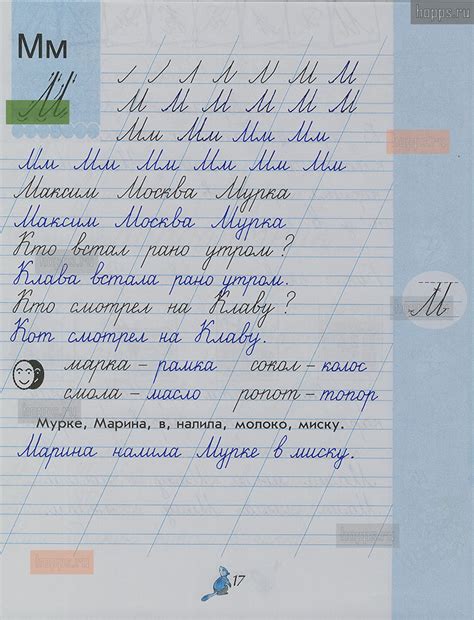 hopps.ru
Мм
М
М М М
М М М М М М М
Мм Мм Мм Мм
Мм Мм Мм Мм Мм Мм
Максим Москва Мурка
Максим Москва Мурка
Кто встал рано утром?
Клава встала рано утром.
Кто смотрел на Клаву?
М
Кот смотрел на Клаву.
марка – рамка сокол – колос
смола – масло ропот – топор
Мурке, Марина, в, налила, молоко, миску.
Марина налила Мурке в миску.
hopps.ru
hopps.ru
17